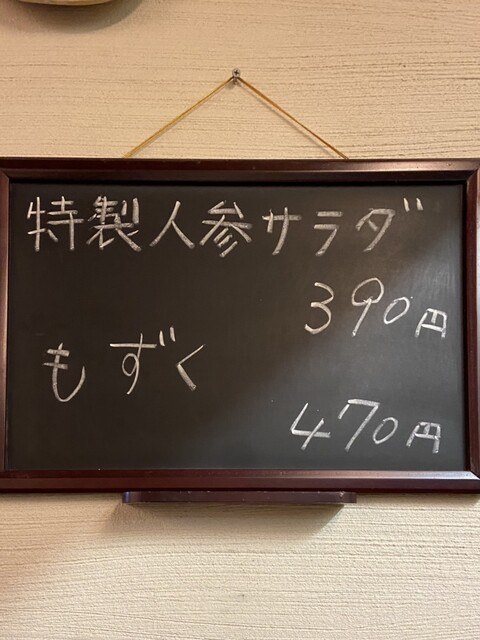 特製人参サラダ
390円
もずく
470円